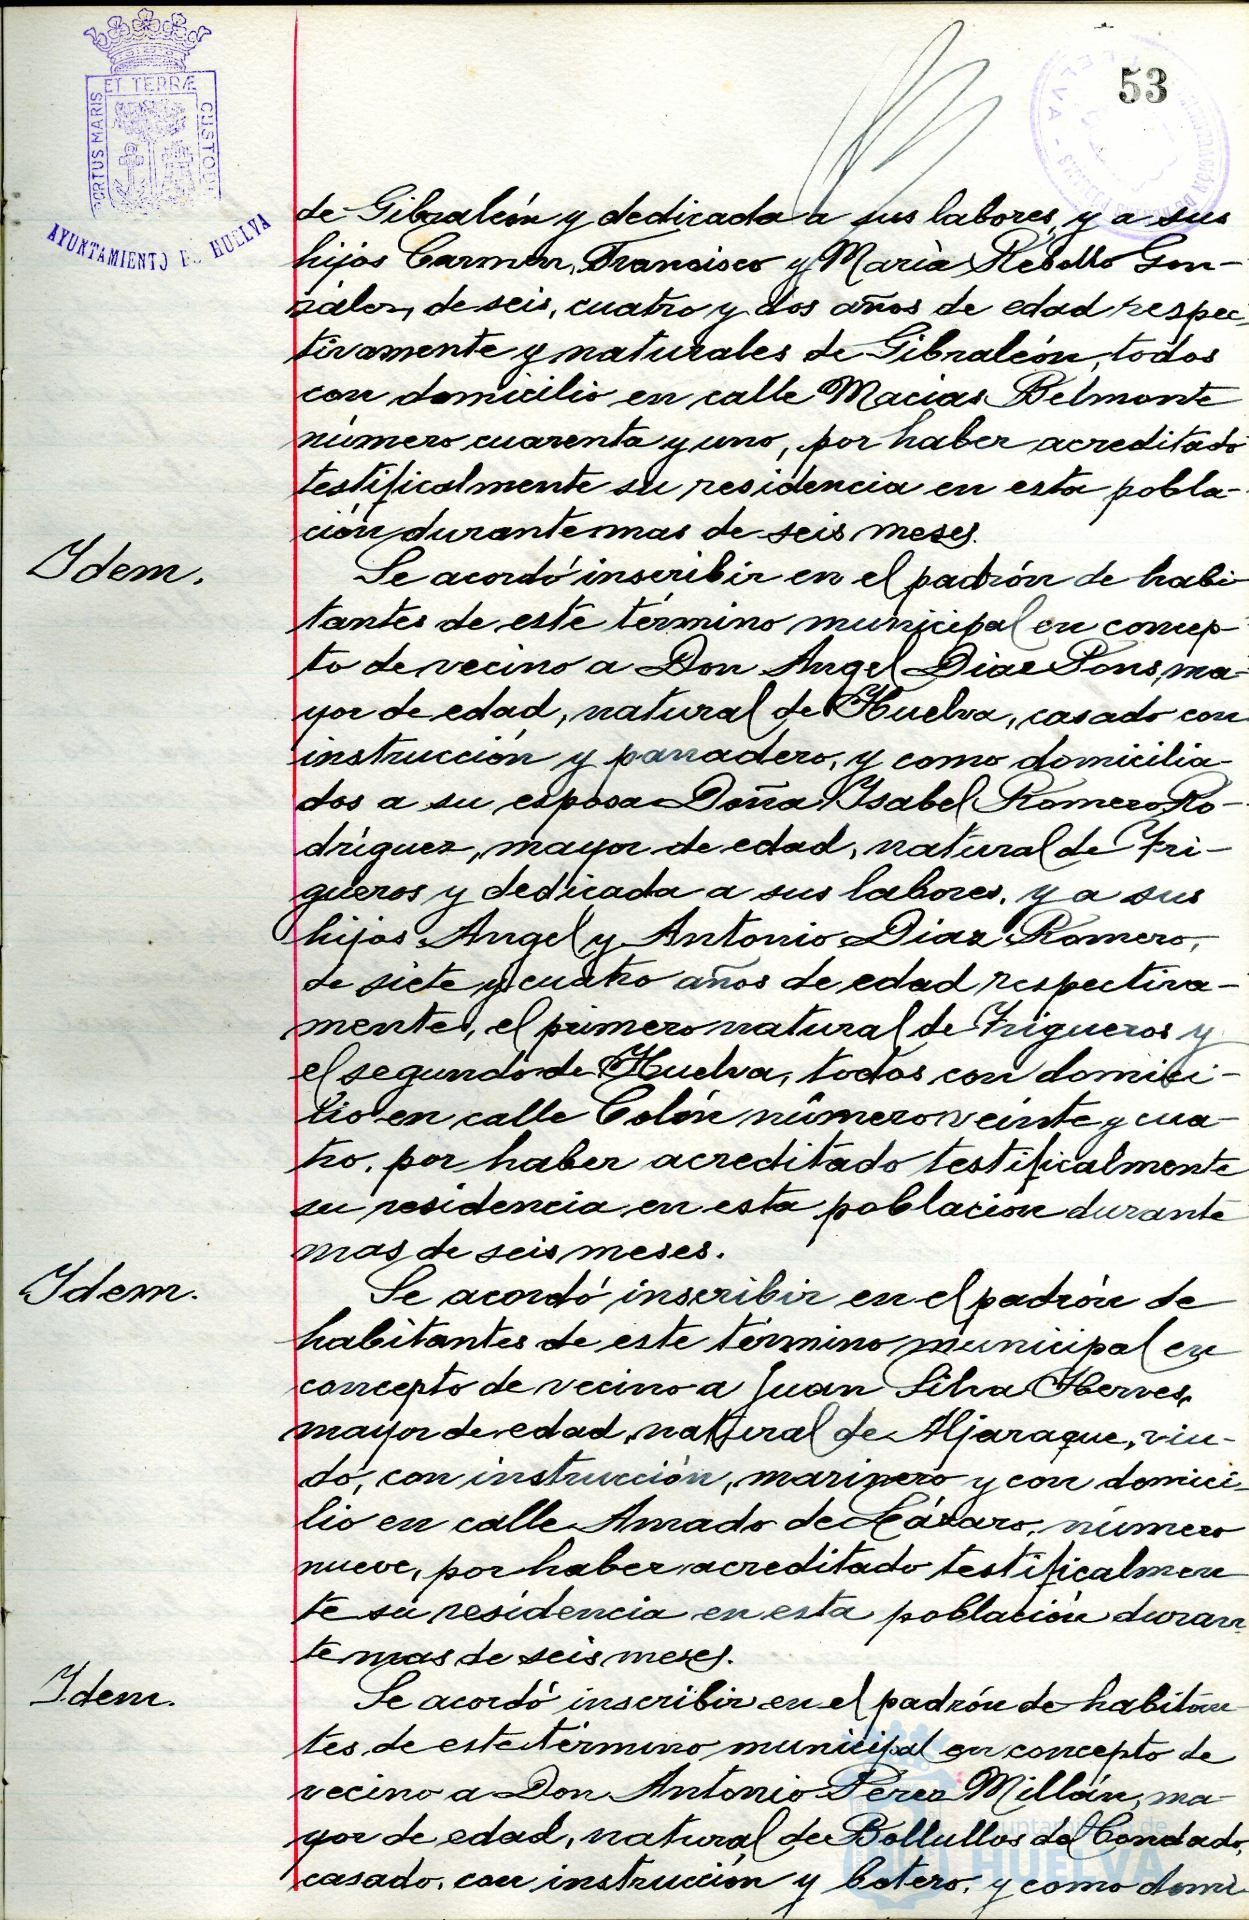 53
PORTUS MARIS ET TERRÆ CUSTODI
AYUNTAMIENTO DE HUELVA
de Gibraleón y dedicada a sus labores, y a sus
hijos Carmen, Francisco y María Rebollo Gon-
zález, de seis, cuatro y dos años de edad respec-
tivamente y naturales de Gibraleón, todos
con domicilio en calle Macias Belmonte
número cuarenta y uno, por haber acreditado
testificalmente su residencia en esta pobla-
ción durante mas de seis meses.
Idem.
Se acordó inscribir en el padrón de habi-
tantes de este término municipal en concep-
to de vecino a Don Angel Diaz Pons, ma-
yor de edad, natural de Huelva, casado con
instrucción y panadero, y como domicilia-
dos a su esposa Doña Isabel Romero Ro-
dríguez, mayor de edad, natural de Tri-
gueros y dedicada a sus labores, y a sus
hijos Angel y Antonio Diaz Romero,
de siete y cuatro años de edad respectiva-
mente, el primero natural de Trigueros y
el segundo de Huelva, todos con domici-
lio en calle Colón número veinte y cua-
tro, por haber acreditado testificalmente
su residencia en esta población durante
mas de seis meses.
Idem.
Se acordó inscribir en el padrón de
habitantes de este término municipal en
concepto de vecino a Juan Silva Herves,
mayor de edad, natural de Aljaraque, viu-
do, con instrucción, marinero y con domici-
lio en calle Amado de Lázaro, número
nueve, por haber acreditado testificalmen
te su residencia en esta población duran
te mas de seis meses.
Idem.
Se acordó inscribir en el padrón de habitan
tes de este término municipal en concepto de
vecino a Don Antonio Pérez Millán, ma-
yor de edad, natural de Bollullos del Condado,
casado, con instrucción y botero, y como domi-
Ayuntamiento de
HUELVA